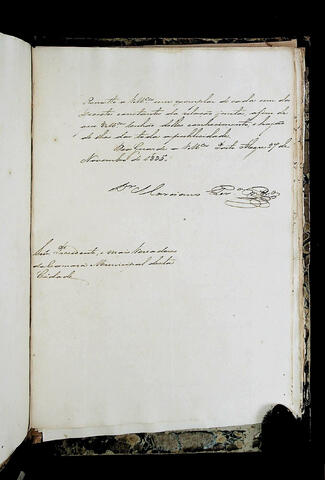 Remetto a VMces um exemplar de cada um dos
Decretos constantes da relação junta, afim de
que VMces tenhão delles conhecimento, e hajão
de lhes dar toda a publicidade.
Deos Guarde a VMces Porto Alegre 27 de
Novembro de 1835.
Dr Marciano Perª Ribº
Senrs Presidente, e mais Vereadores
da Camara Municipal desta
Cidade